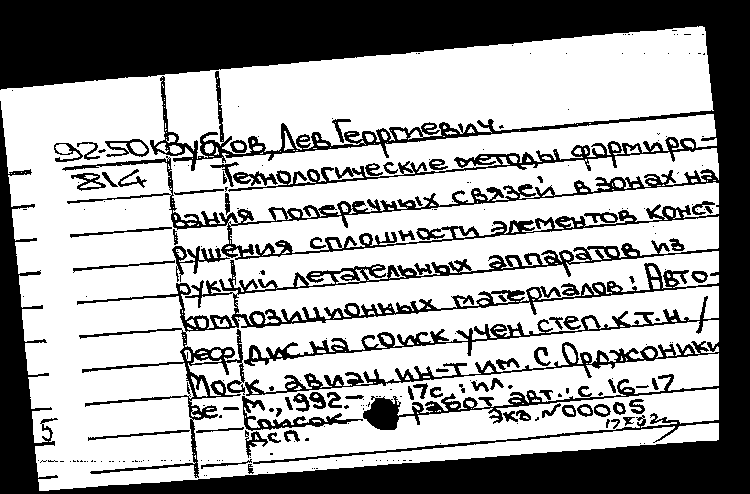 92-50к Зубков, Лев Георгиевич.
814 Технологические методы формиро-
вания поперечных связей в зонах на
рушения сплошности элементов конст
рукций летательных аппаратов из
композиционных материалов: Авто-
реф. дис. на соиск. учен. степ. к.т.н. /
Моск. авиац. ин-т им. С. Орджоники
зе. - М., 1992. - 17с.: ил.
Список работ авт.: с. 16-17
ДСП. Экз. N00005
5